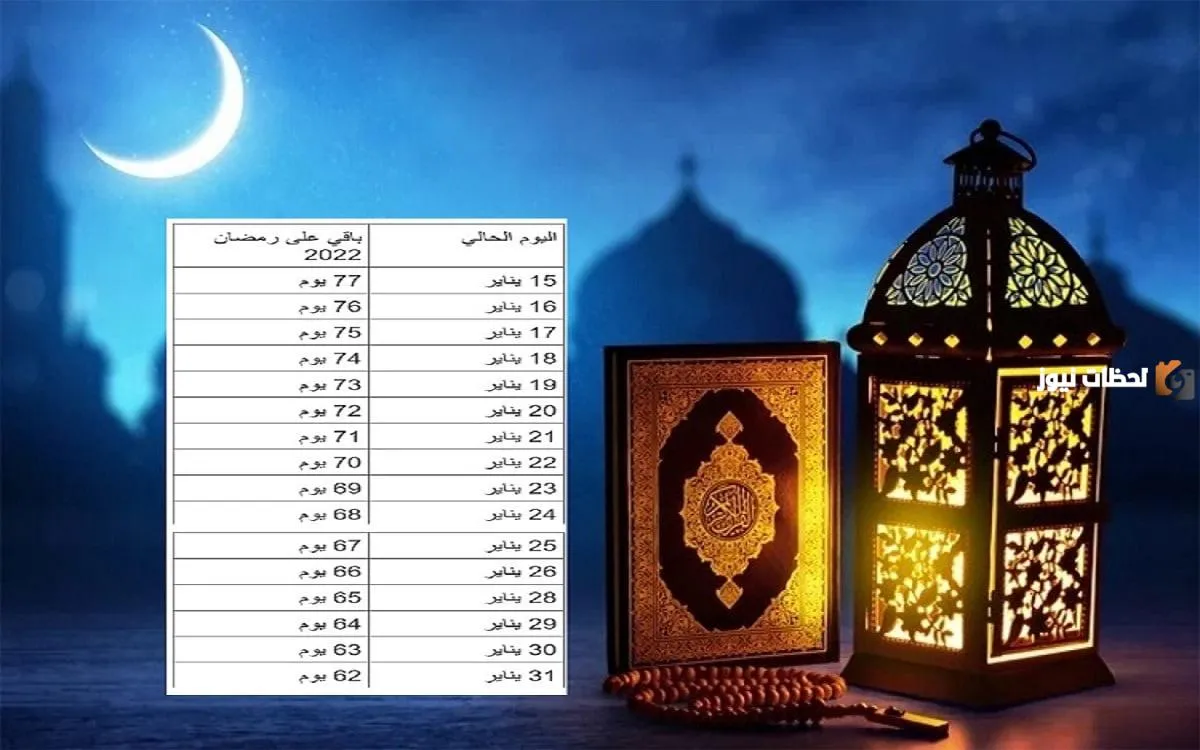 اليوم الحالي باقي على رمضان
2022
15 يناير 77 يوم
16 يناير 76 يوم
17 يناير 75 يوم
18 يناير 74 يوم
19 يناير 73 يوم
20 يناير 72 يوم
21 يناير 71 يوم
22 يناير 70 يوم
23 يناير 69 يوم
24 يناير 68 يوم
25 يناير 67 يوم
26 يناير 66 يوم
28 يناير 65 يوم
29 يناير 64 يوم
30 يناير 63 يوم
31 يناير 62 يوم
لحظات نيوز